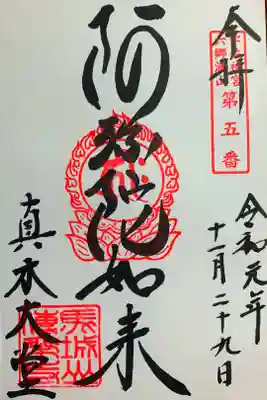 奉拝
第五番
阿弥陀如来
令和元年
十一月二十九日
真木大堂